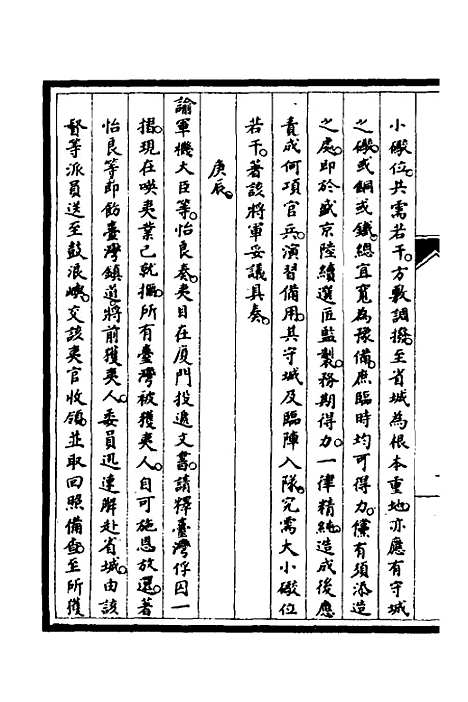 小礮位。共需若干。方敷調撥。至省城為根本重地。亦應有守城
之礮。或銅或鐵。總宜寬為豫備。庶臨時均可得力。儻有須添造
之處。即於盛京陸續選匠監製。務期得力。一律精純。造成後應
責成何項官兵。演習備用。其守城及臨陣入隊。究需大小礮位
若干。著該將軍妥議具奏。
庚辰。
諭軍機大臣等。怡良奏。夷目在廈門投遞文書。請釋臺灣俘囚一
摺。現在㗎夷業已就撫。所有臺灣被獲夷人。自可施恩放還。著
怡良等即飭臺灣鎮道。將前獲夷人。委員迅速解赴省城。由該
督等派員送至鼓浪嶼。交該夷官收領。並取回照備查。至所獲